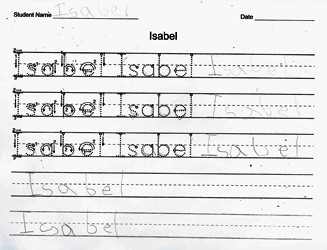 Student Name Isabel Date
Isabel
Isabel Isabel Isabel
Isabel Isabel Isabel
Isabel Isabel Isabel
Isabel
Isabel